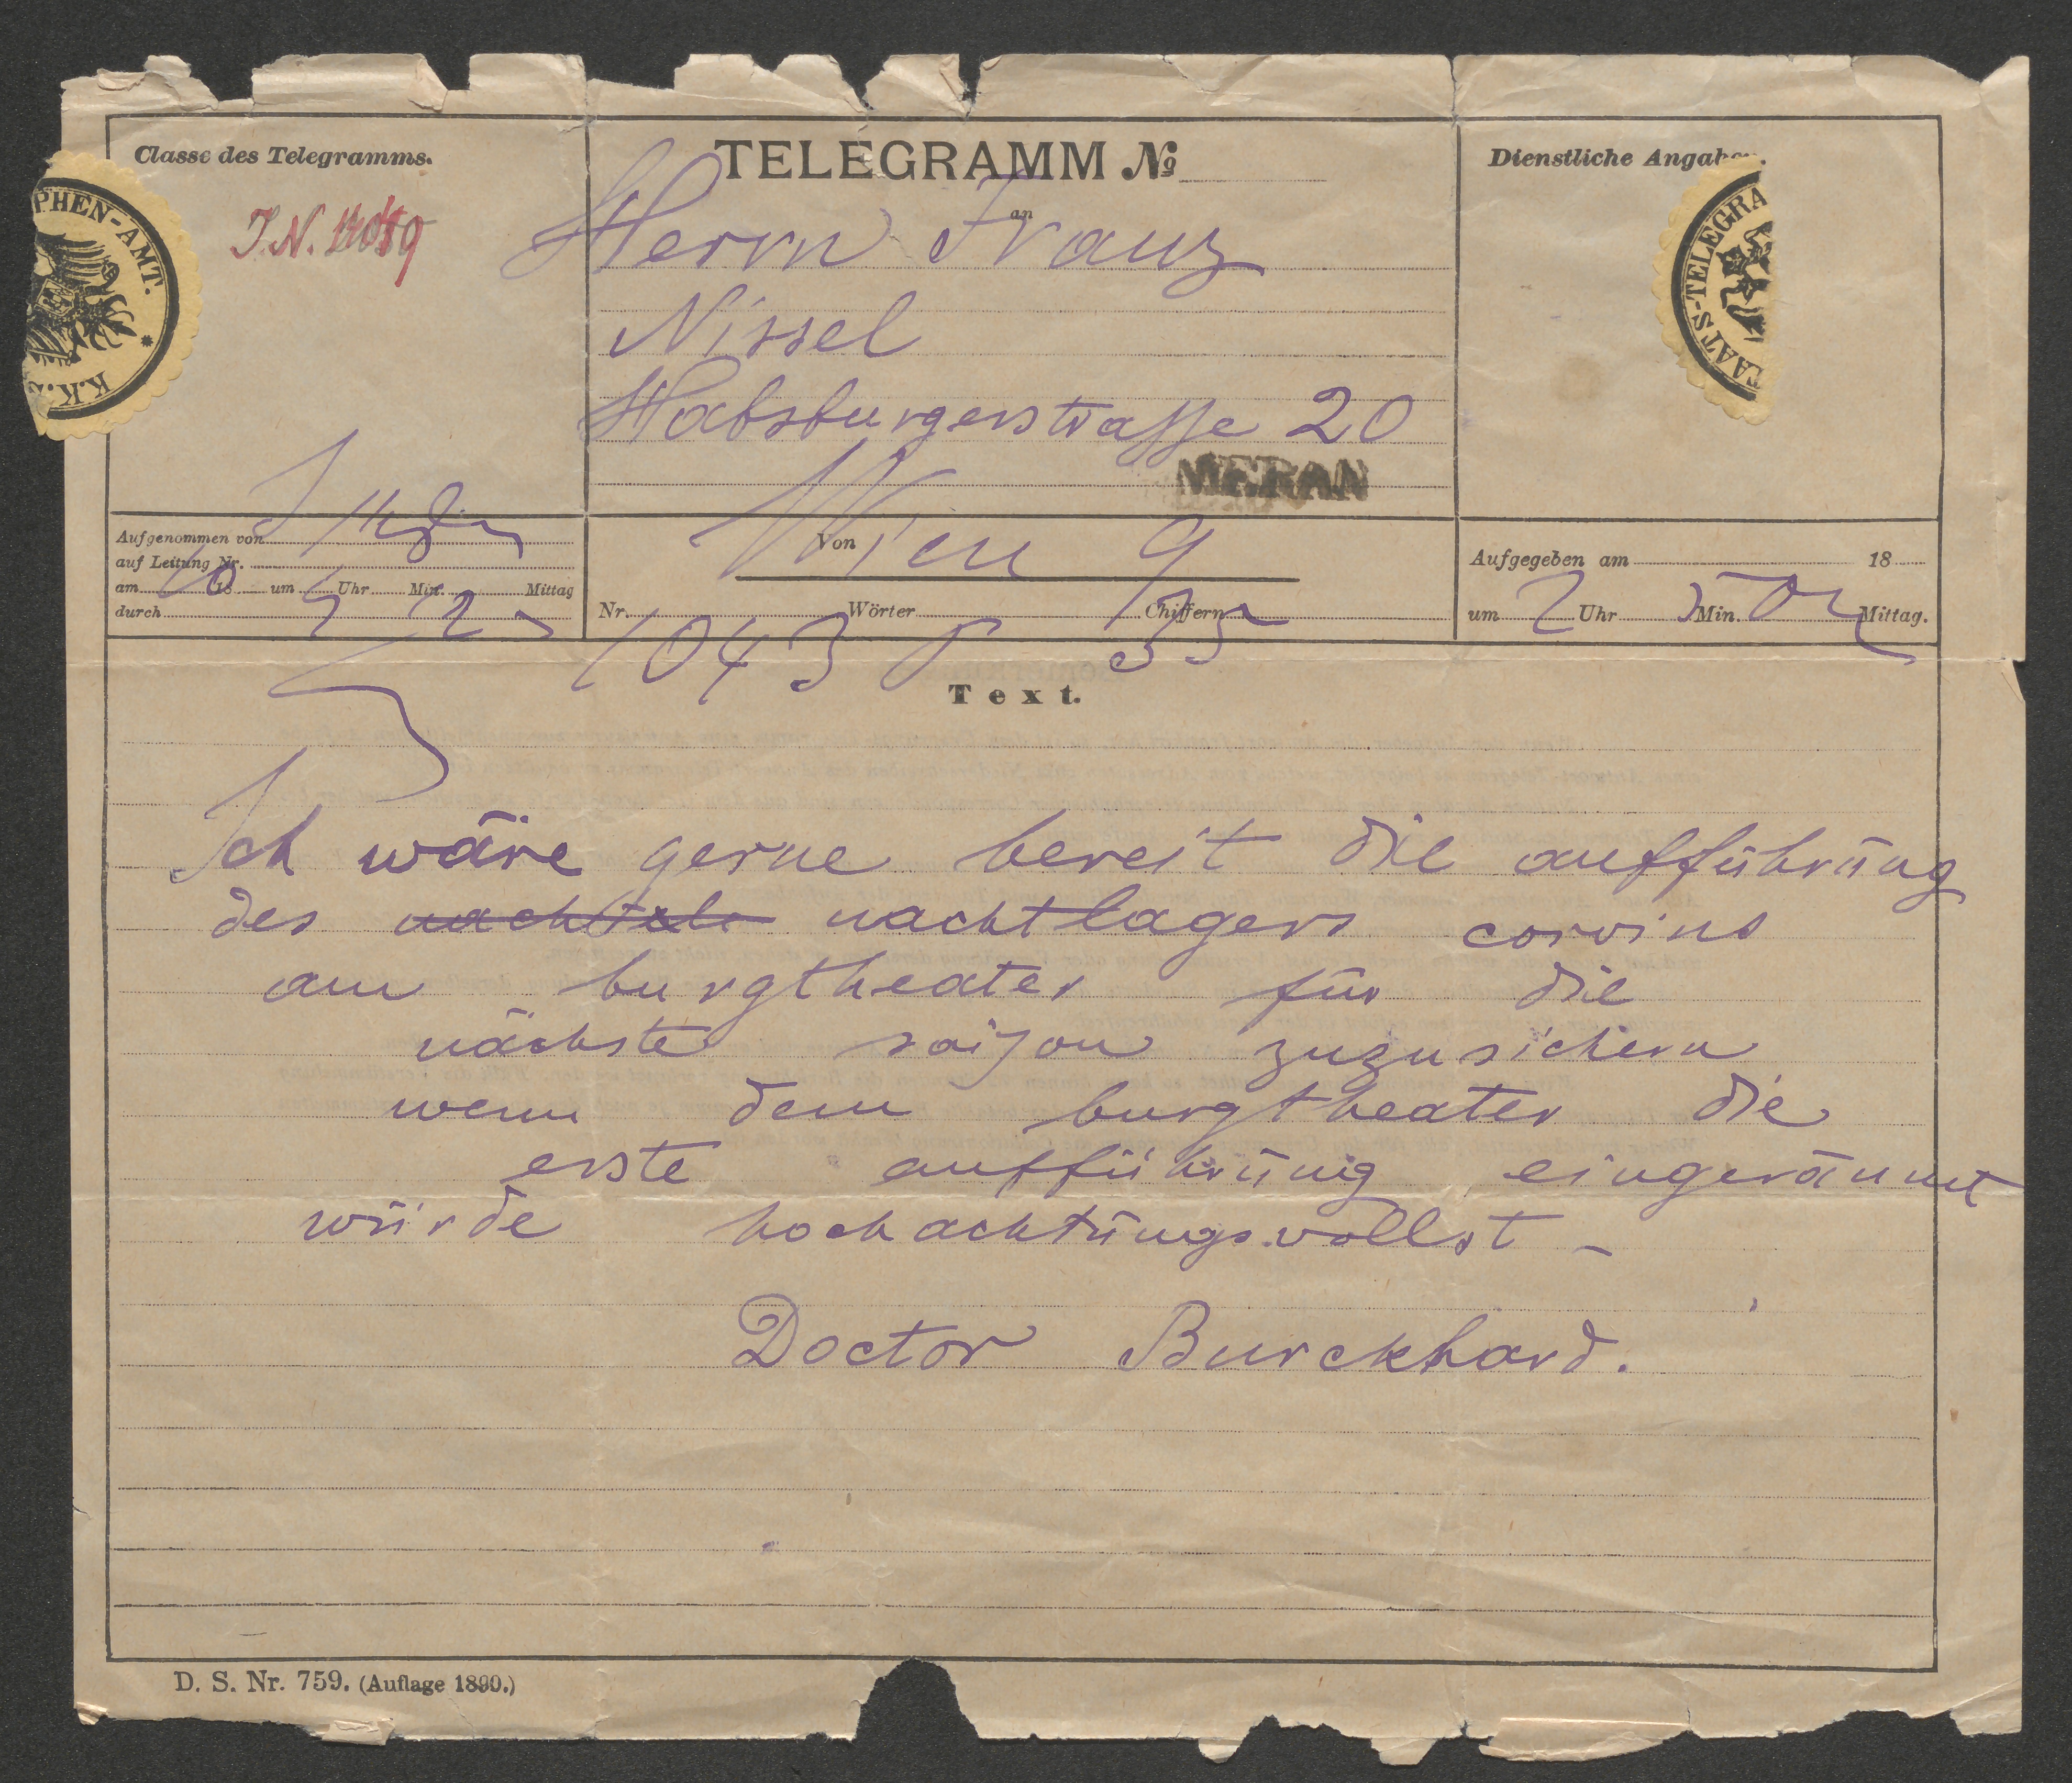 Classe des Telegramms.
TELEGRAMM No
Dienstliche Angaben.
PHEN-AMT.
K.K.
TAATS-TELEGRA
J.N.
an
Herrn Franz
Nissel
Habsburgerstrasse 20
MERAN
Aufgenommen von
auf Leitung Nr.
am 10 18 um Uhr Min. Mittag
durch
Von
Wien 9
Nr. Wörter Chiffern
1043 35
Aufgegeben am 18
um 2 Uhr Min. Mittag.
Text.
Ich wäre gerne bereit die aufführung
des nachtlagers corvins
am burgtheater für die
nächste saison zuzusichern
wenn dem burgtheater die
erste aufführung eingeräumt
würde hochachtungsvollst –
Doctor Burckhard.
D. S. Nr. 759. (Auflage 1890.)